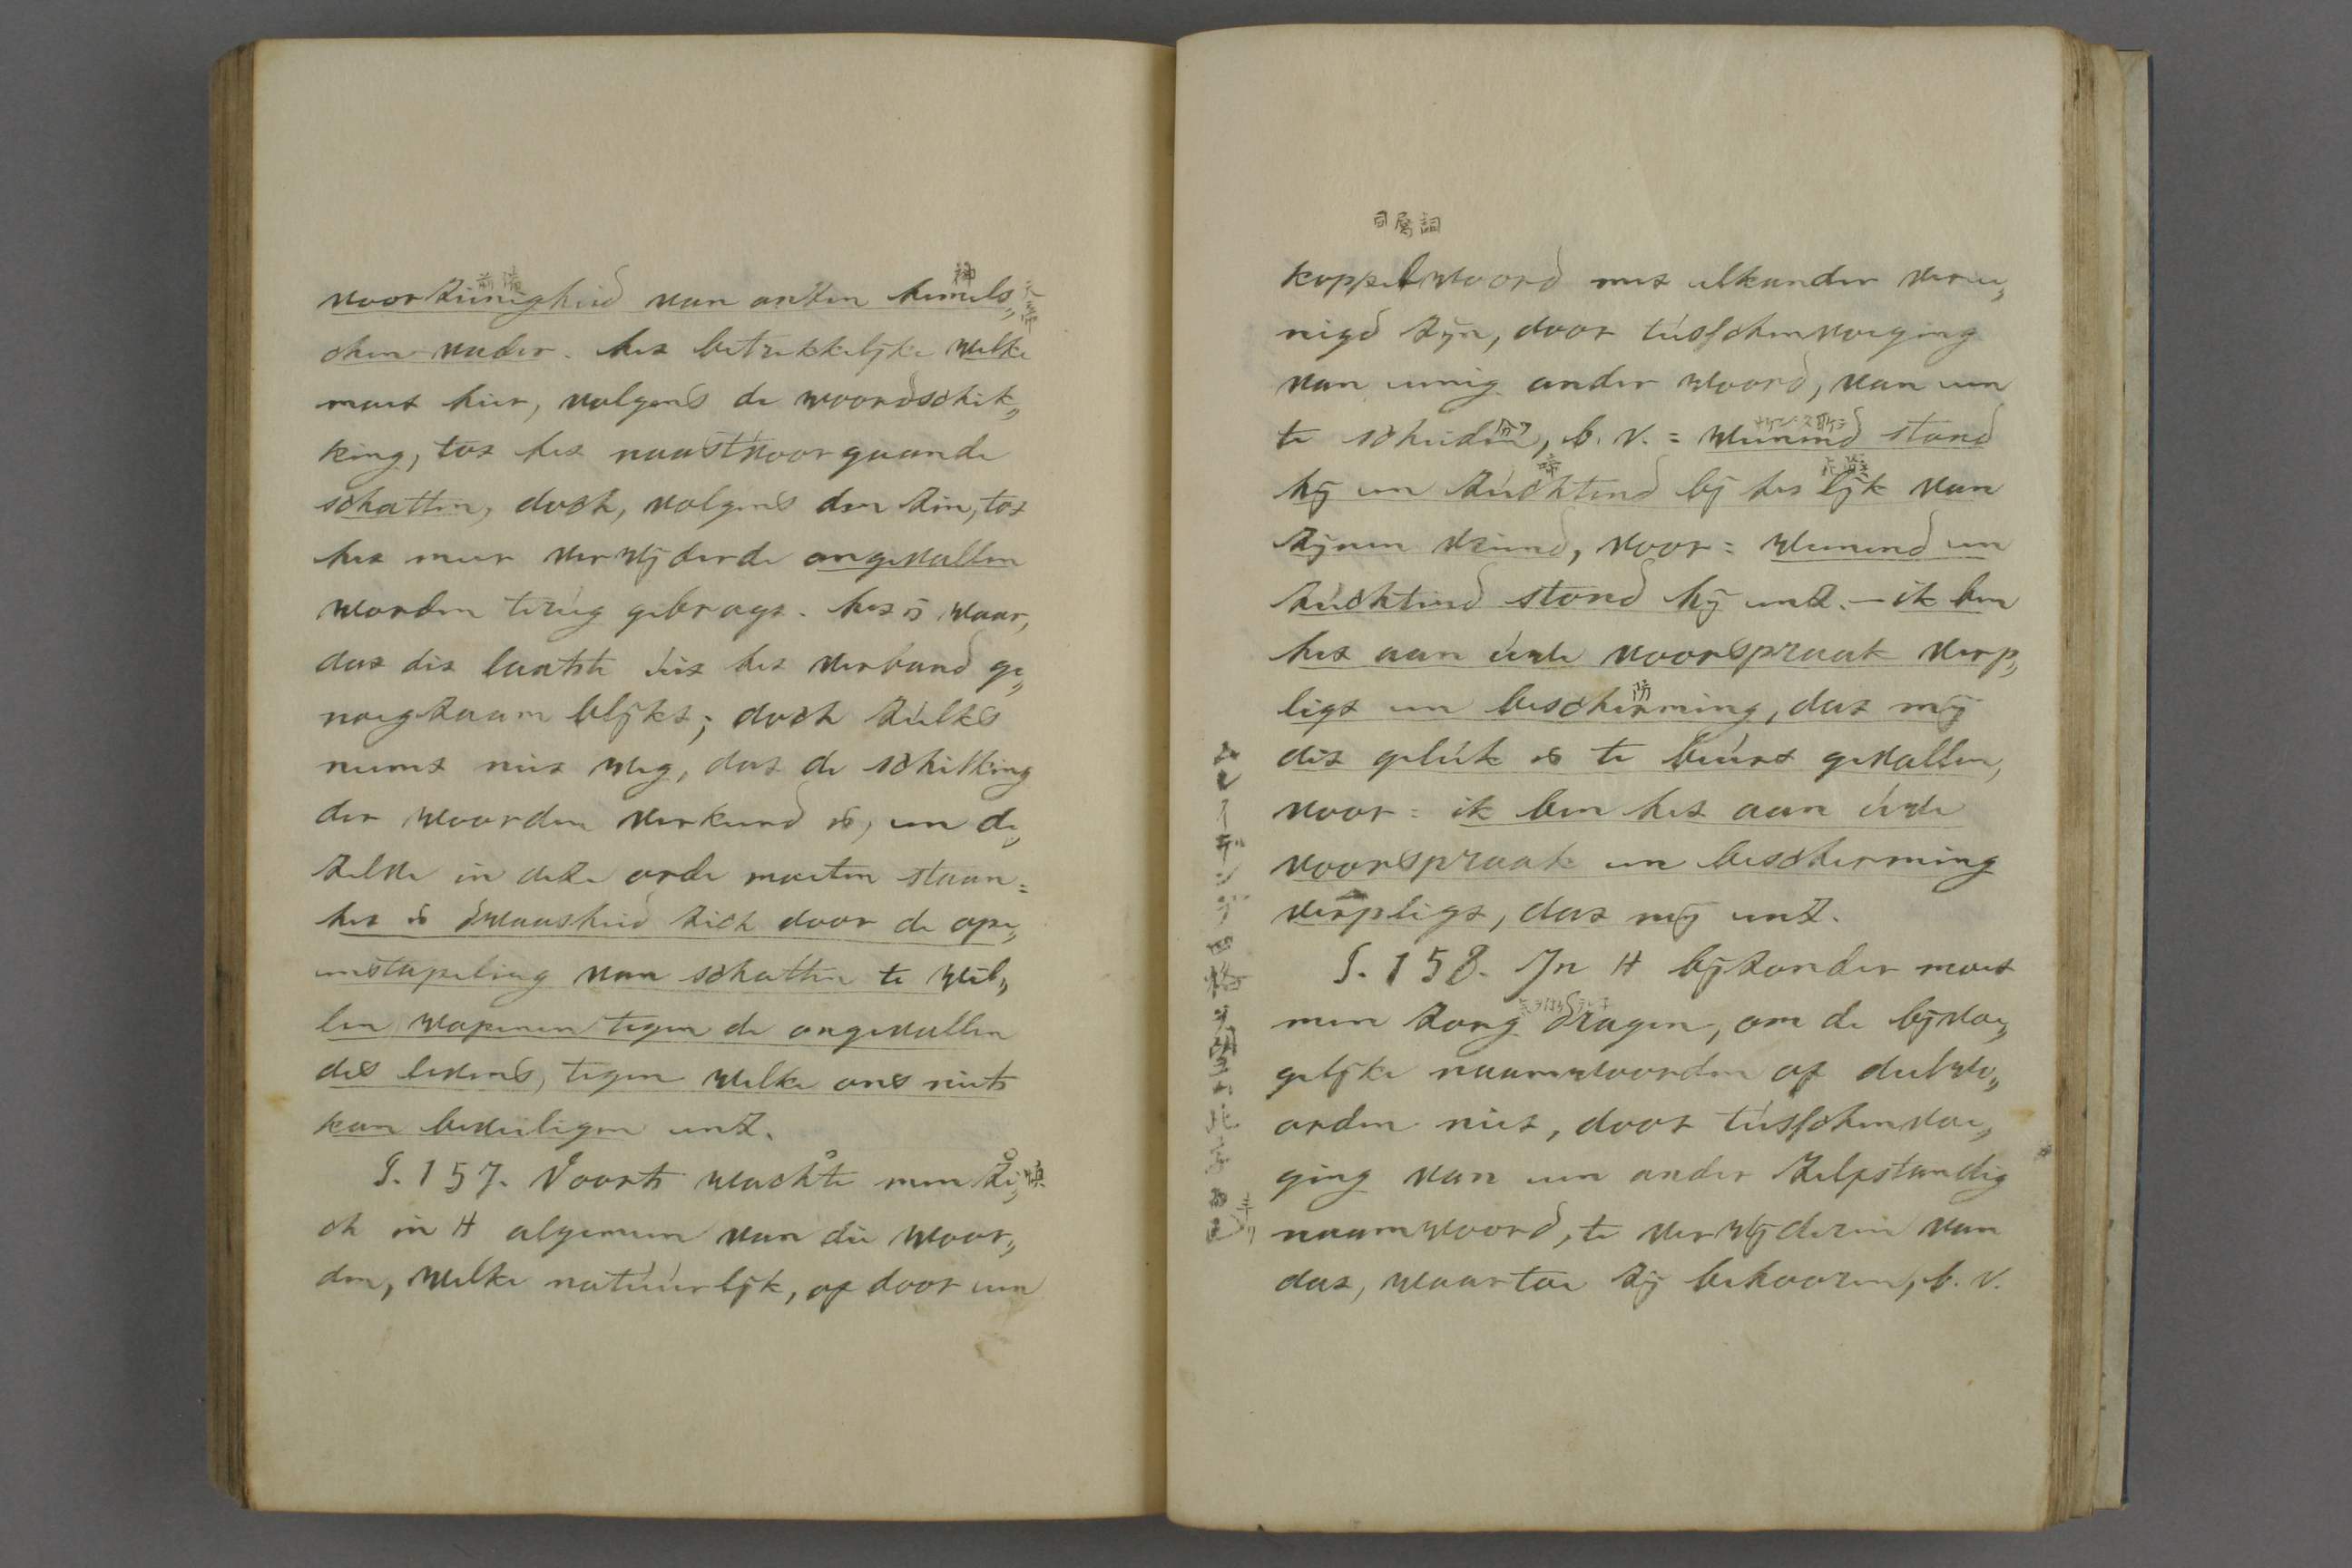 voorzienigheid van onzen hemels„
chen vader. het betrekkelijke welke
moet hier, volgens de woordschik„
king, tot het naastvoorgaande
schatten, doch, volgens den zin, tot
het meer verwijderde ongevallen
worden terúg gebragt. het is waar,
dat dit laatste úit het verband ge„
noegzaam blijkt; doch zúlks
neemt niet weg, dat de schikking
der woorden verkeerd is, en de„
zelve in deze orde moeten staan=
het is dwaasheid zich door de ope„
enstapeling van schatten te wil„
len wapenen tegen de ongevallen
des levens, tegen welke ons niets
kan beveiligen enz.
§. 157. Voorts wachte men zi„
ch in H algemeen van die woor„
den, welke natúúrlijk, of door een
句属詞
koppelwoord met elkander veree„
nigd zijn, door tússchenvoeging
van eenig ander woord, van een
te scheiden, b. v. = weenend stond
hij en zúchtend bij het lijk van
zijnen vriend, voor = weenend en
zúchtend stond hij enz. — ik ben
het aan úwe voorspraak verp„
ligt en bescherming, dat mij
dit gelúk is te beúrt gevallen,
voor = ik ben het aan úwe
voorspraak en bescherming
verpligt, dat mij enz.
§. 158. In H bijzonder moet
men zorg dragen, om de bijvoe„
gelijke naamwoorden of deelwo„
orden niet, door tússchenvoe„
ging van een ander zelfstandig
naamwoord, te verwijderen van
dat, waartoe zij behooren, b. v.